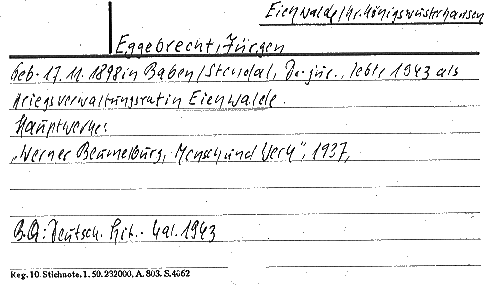 Eienwalde/Kr. Königswusterhausen
Eggebrecht, Jürgen
Geb. 17.11.1898 in Baben/Stendal, Dr. jur., lebte 1943 als
Kriegsverwaltungsrat in Eienwalde.
Hauptwerke:
„Werner Beumelburg, Mensch und Werk", 1937,
B.Q: Deutsch. Lit.- Kal. 1943
Reg. 10. Stichnote. 1. 50. 232000. A. 803. S. 4062